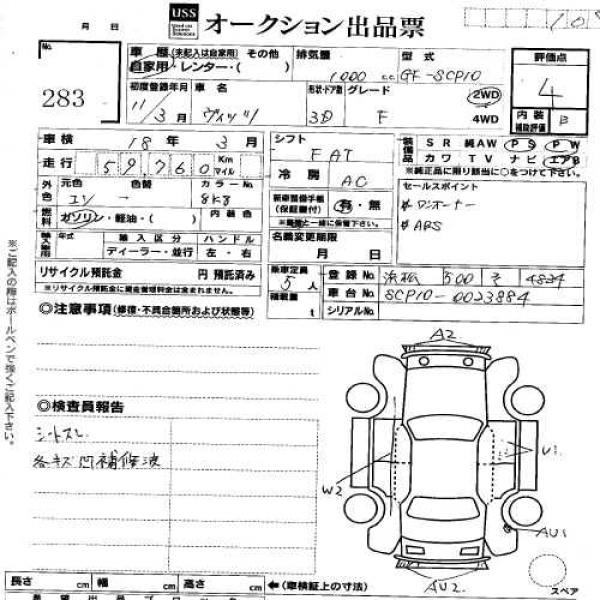 USS オークション出品票
月 日
No.
283
車歴 (未記入は自家用) その他
自家用・レンター・( )
排気量
1000 c.c
型式
GF-SCP10
評価点
4
内装
補助評価
B
初度登録年月
11/3月
車名
ヴィッツ
形状・ドア数
3D
グレード
F
2WD
4WD
車検 18年 3月
シフト
FAT
装備品
SR 純AW PS PW
カワ TV ナビ エアB
※純正品に限り該当に○をつけて下さい。
走行 59,760 Km マイル
冷房
AC
セールスポイント
ワンオーナー
ABS
外色
元色
色替
カラーNo.
8K8
新車整備手帳
(保証書付)
有・無
燃料
ガソリン・軽油・( )
内装色
輸入車用
年式
輸入区分
ハンドル
ディーラー・並行
左・右
名義変更期限
月 日
リサイクル預託金 円 預託済み
※リサイクル預託金に資金管理料金は含まれません。
乗車定員
5人
積載量
t
登録No. 浜松 500 そ 4834
車台No. SCP10-0023884
シリアルNo.
◎注意事項 (修復・不具合箇所および状態等)
※ご記入の際はボールペンで強くご記入下さい。
◎検査員報告
シートスレ
各キズ凹補修波
A2
W2
U1
AU1
AU2
スペア
長さ cm 幅 cm 高さ cm ←(車検証上の寸法)